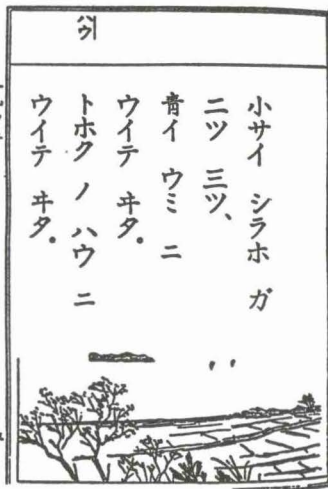 ハウ
小サイ シラホ ガ
二ツ 三ツ、
青イ ウミ ニ
ウイテ ヰタ。
トホク ノ ハウ ニ
ウイテ ヰタ。